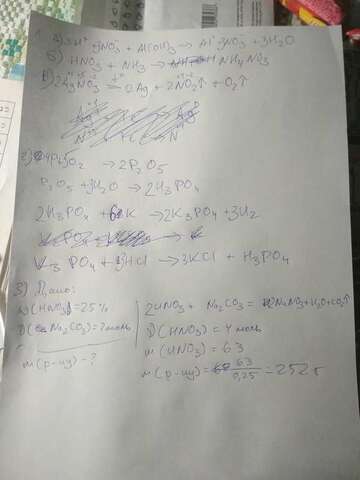 а) 3H⁺NO₃⁻ + Al(OH)₃ → Al³⁺(NO₃)₃ + 3H₂O
б) HNO₃ + NH₃ → NH₄NO₃
в) 2AgNO₃ = 2Ag + 2NO₂↑ + O₂↑
2) 4P+5O₂ → 2P₂O₅
P₂O₅ + 3H₂O → 2H₃PO₄
2H₃PO₄ + 6K → 2K₃PO₄ + 3H₂
K₃PO₄ + 3HCl → 3KCl + H₃PO₄
3) Дано:
W(HNO₃) = 25%
ν(Na₂CO₃) = 2 моль
m(р-ну) - ?
2HNO₃ + Na₂CO₃ = 2NaNO₃ + H₂O + CO₂↑
ν(HNO₃) = 4 моль
m(HNO₃) = 63
m(р-ну) = 63/0,25 = 252 г